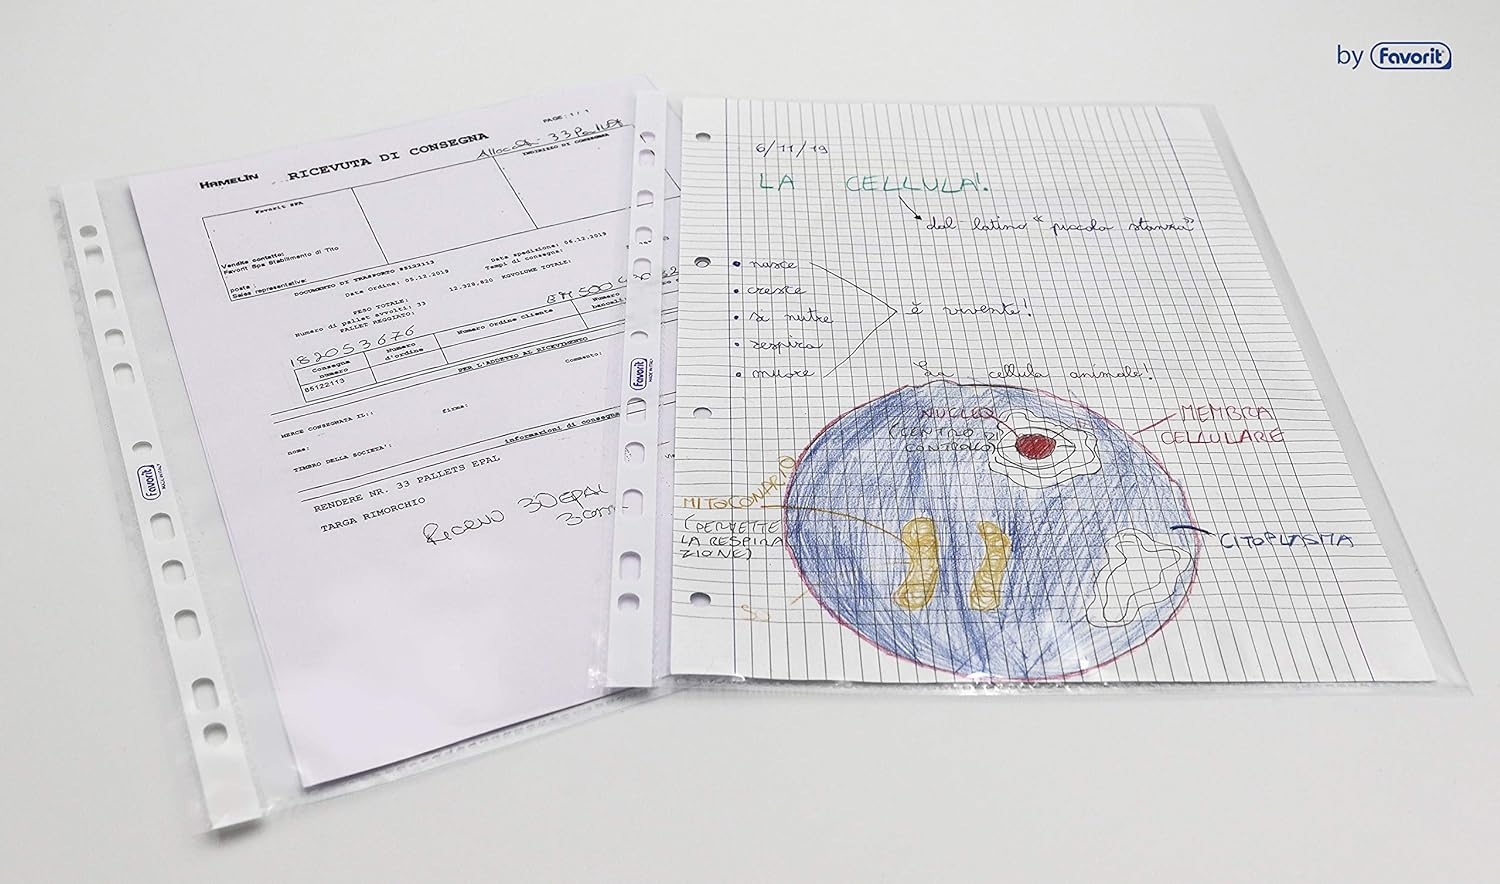 by Favorit
HAMELIN
RICEVUTA DI CONSEGNA
PAGE: 1 / 1
33
INDIRIZZO DI CONSEGNA
Favorit SPA
Vendite contatto:
Favorit Spa Stabilimento di Tito
posta :
Sales representative:
DOCUMENTO DI TRASPORTO 85122113
Data Ordine: 05.12.2019
Data spedizione: 06.12.2019
Tempi di consegna:
PESO TOTALE:
12.328,820 KGVOLUME TOTALE:
Numero di pallet avvolti: 33
PALLET REGGIATO:
182053676
Consegna numero
Numero d'ordine
Numero Ordine cliente
Numero
85122113
PER L'ADDETTO AL RICEVIMENTO
Commento:
MERCE CONSEGNATA IL::
firma:
nome:
TIMBRO DELLA SOCIETA':
informazioni di consegna
RENDERE NR. 33 PALLETS EPAL
TARGA RIMORCHIO
30 EPAL
Favorit
MADE IN ITALY
Favorit
MADE IN ITALY
6/11/19
LA CELLULA!
dal latino "piccola stanza"
• nasce
• cresce
• si nutre
• respira
• muore
è vivente!
La cellula animale!
NUCLEO
(CENTRO DI
CONTROLLO)
MEMBRA
CELLULARE
MITOCONDRIO
(PERMETTE
LA RESPIRA
ZIONE)
CITOPLASMA